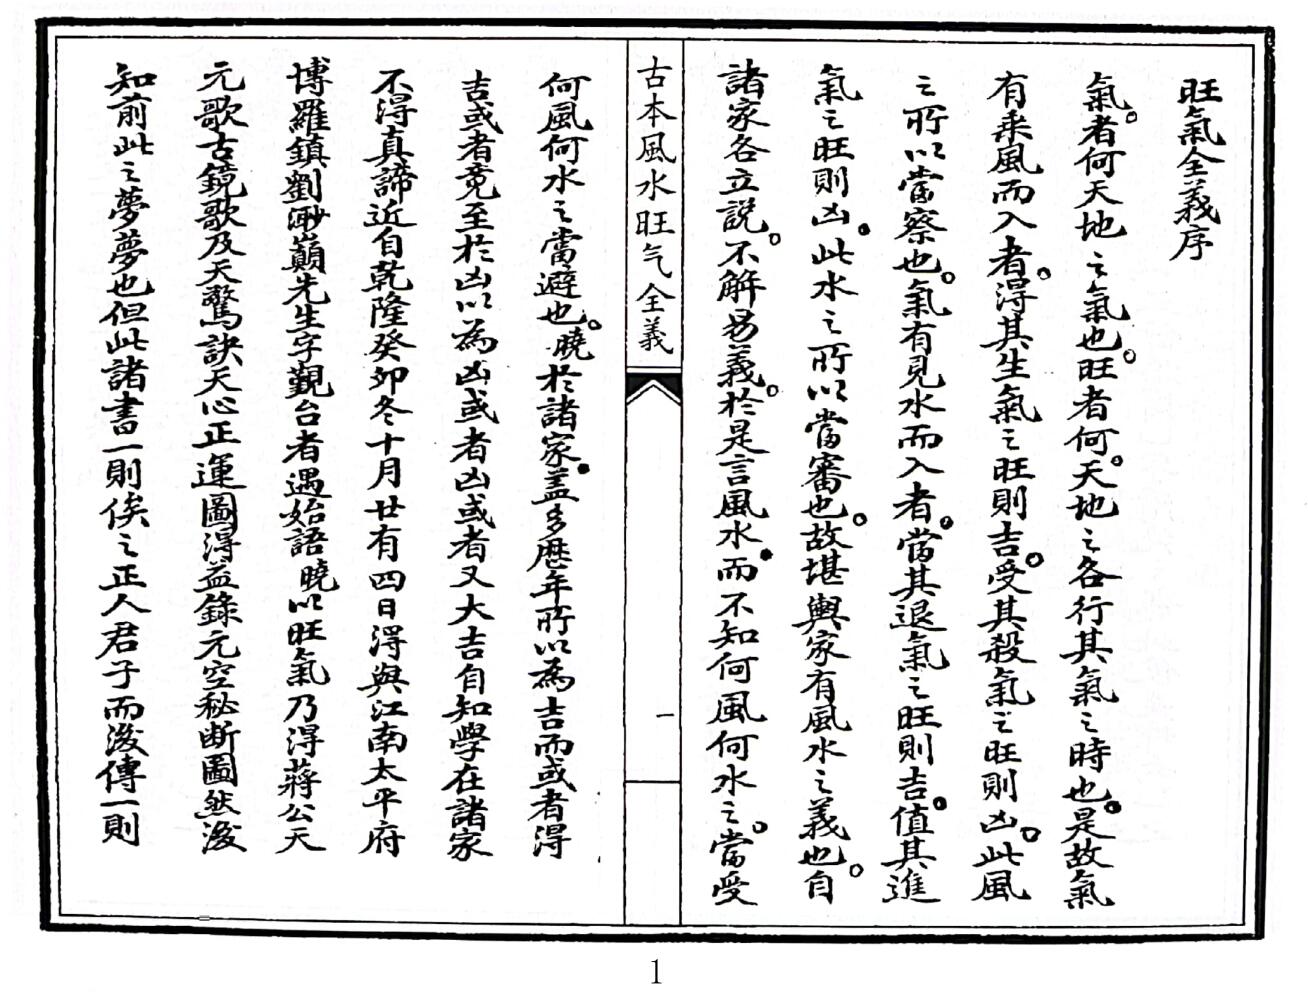 旺氣全義序
氣。者何天地之氣也。旺者何。天地之各行其氣之時也。是故氣
有乘風而入者。得其生氣之旺則吉。受其殺氣之旺則凶。此風
之所以當察也。氣有見水而入者。當其退氣之旺則吉。值其進
氣之旺則凶。此水之所以當審也。故堪輿家有風水之義也。自
諸家各立説。不解易義。於是言風水。而不知何風何水之。當受
古本風水旺气全義
一
何風何水之當避也。曉於諸家。盖多歷年所以為吉而或者得
吉或者竟至於凶以為凶或者凶或者又大吉自知學在諸家
不得真諦近自乾隆癸卯冬十月廿有四日得與江南太平府
博羅鎮劉渺巔先生字觀台者遇始語曉以旺氣乃得蔣公天
元歌古鏡歌及天驚訣天心正運圖得益錄元空秘断圖然後
知前此之夢夢也但此諸書一則俟之正人君子而後傳一則
1